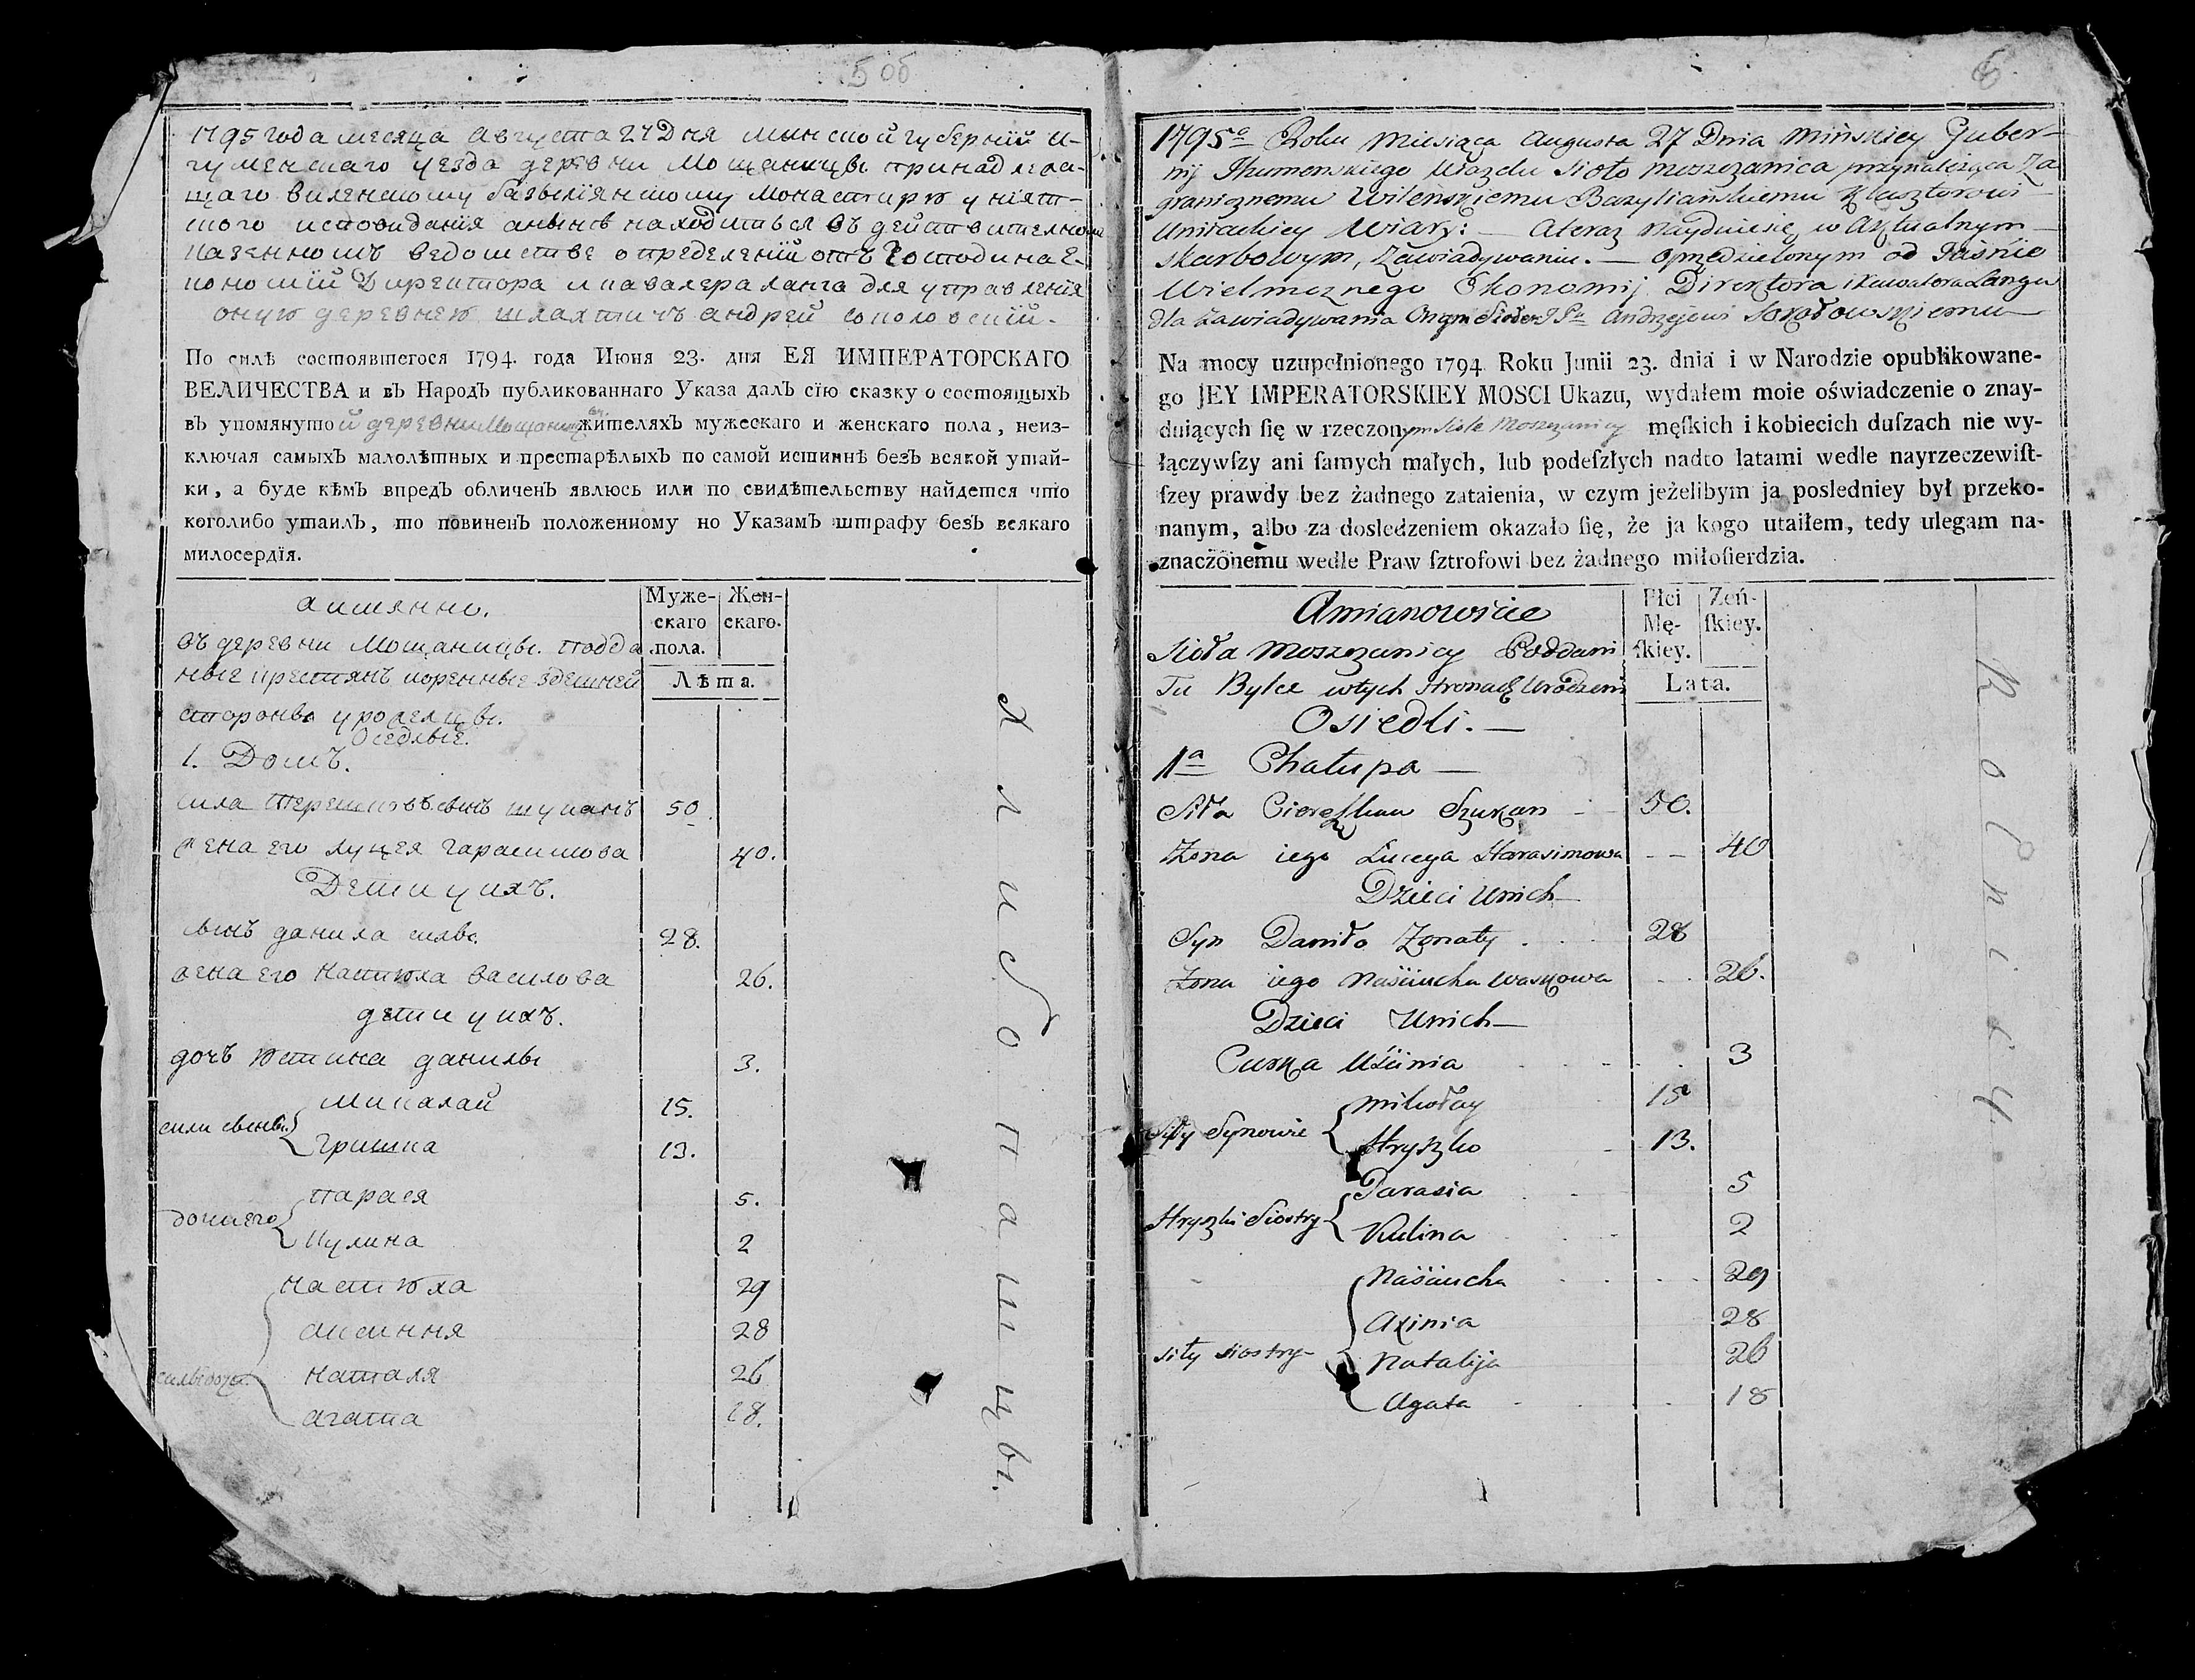 5 об
1795 года месяца августа 27 Дня минской губернїи и-
гуменскаго уезда деревни Мощаницы принадлежа-
щаго виленскому базылїянскому монастирю унїят-
ского исповиданїя анынѣ находиться въ действителном
казенномъ ведомстве определенїи отъ Господина Е-
кономїи Директора икавалера ланга для управленїя
оную деревнею шляхтичъ андрей соколовскїй.
По силѣ состоявшегося 1794 года Июня 23. дня ЕЯ ИМПЕРАТОРСКАГО
ВЕЛИЧЕСТВА и въ Народъ публикованнаго Указа далъ сїю сказку о состоящыхъ
въ упомянутой деревни Мощаницы жителяхъ мужескаго и женскаго пола, неиз-
ключая самыхъ малолѣтныхъ и престарѣлыхъ по самой истиннѣ безъ всякой утай-
ки, а буде кѣмъ впредь обличенъ явлюсь или по свидѣтельству найдется что
коголибо утаилъ, то повиненъ положенному по Указамъ штрафу безъ всякаго
милосердїя.
аимянно.
Муже-скаго пола.
Жен-скаго.
Лѣта.
въ деревни Мощаницы. подда
ные крестянъ коренные здешней
стороны уроделцы.
Оседлые.
1. Домъ.
сила терешковъ сынъ шуканъ 50.
жена его луцея гарасимова 40.
Дети у ихъ.
сынъ данила силы 28.
жена его настюха василова 26.
дети у ихъ.
дочъ юстина данилы 3.
сили сыны
миколай 15.
гришка 13.
дочи его
парася 5.
кулина 2
силы дочи
настюха 29
аксиння 28
наталя 26
агата 18.
хлибопашцы.
6.
1795o Roku Miesiąca Augusta 27 Dnia Mińskiey Guber-
nij Ihumenskiego Uiazdu Sioło Moszczanica przynależąca Za
granicznemu Wileńskiemu Bazyliańskiemu Klasztorowi
Uniackiey Wiary: — Ateraz Nayduiesię w Aktualnym
Skarbowym, Zawiadywaniu. — Opredzielonym od Jaśnie
Wielmoznego Ekonomij Direktora i Kawalora Langa
dla Zawiadywania Onym Siołem JPn Andrzejewi Sokołowskiemu
Na mocy uzupełnionego 1794 Roku Junii 23. dnia i w Narodzie opublikowane-
go JEY IMPERATORSKIEY MOSCI Ukazu, wydałem moie oświadczenie o znay-
duiących ſię w rzeczonym Siole Moszczanicy męſkich i kobiecich duſzach nie wy-
łączywſzy ani ſamych małych, lub podeſzłych nadto latami wedle nayrzeczewiſt-
ſzey prawdy bez żadnego zataienia, w czym jeżelibym ja posledniey był przeko-
nanym, albo za dosledzeniem okazało ſię, że ja kogo utaiłem, tedy ulegam na-
znaczonemu wedle Praw ſztrofowi bez żadnego miłoſierdzia.
Amianowicie
Płci Mę-ſkiey.
Zeń-ſkiey.
Lata.
Sioła Moszczanicy Poddani
Tu Bylce wtych Stronach Urodzeni
Osiedli. —
1a Chałupa —
Siła Ciereszkow Szukan 50.
Żona iego Łuceya Harasimowa 40
Dzieci Unich
Syn Daniło Żonaty 28
Żona iego Naściucha Waskowa 26.
Dzieci Unich
Curka Uścinia 3
Siły Synowie
Mikołay 15
Hryszko 13.
Hryszki Siostry
Parasia 5
Kulina 2
Siły Siostry
Naściucha 29
Axinia 28
Natalija 26
Agata 18
Rolnicy.